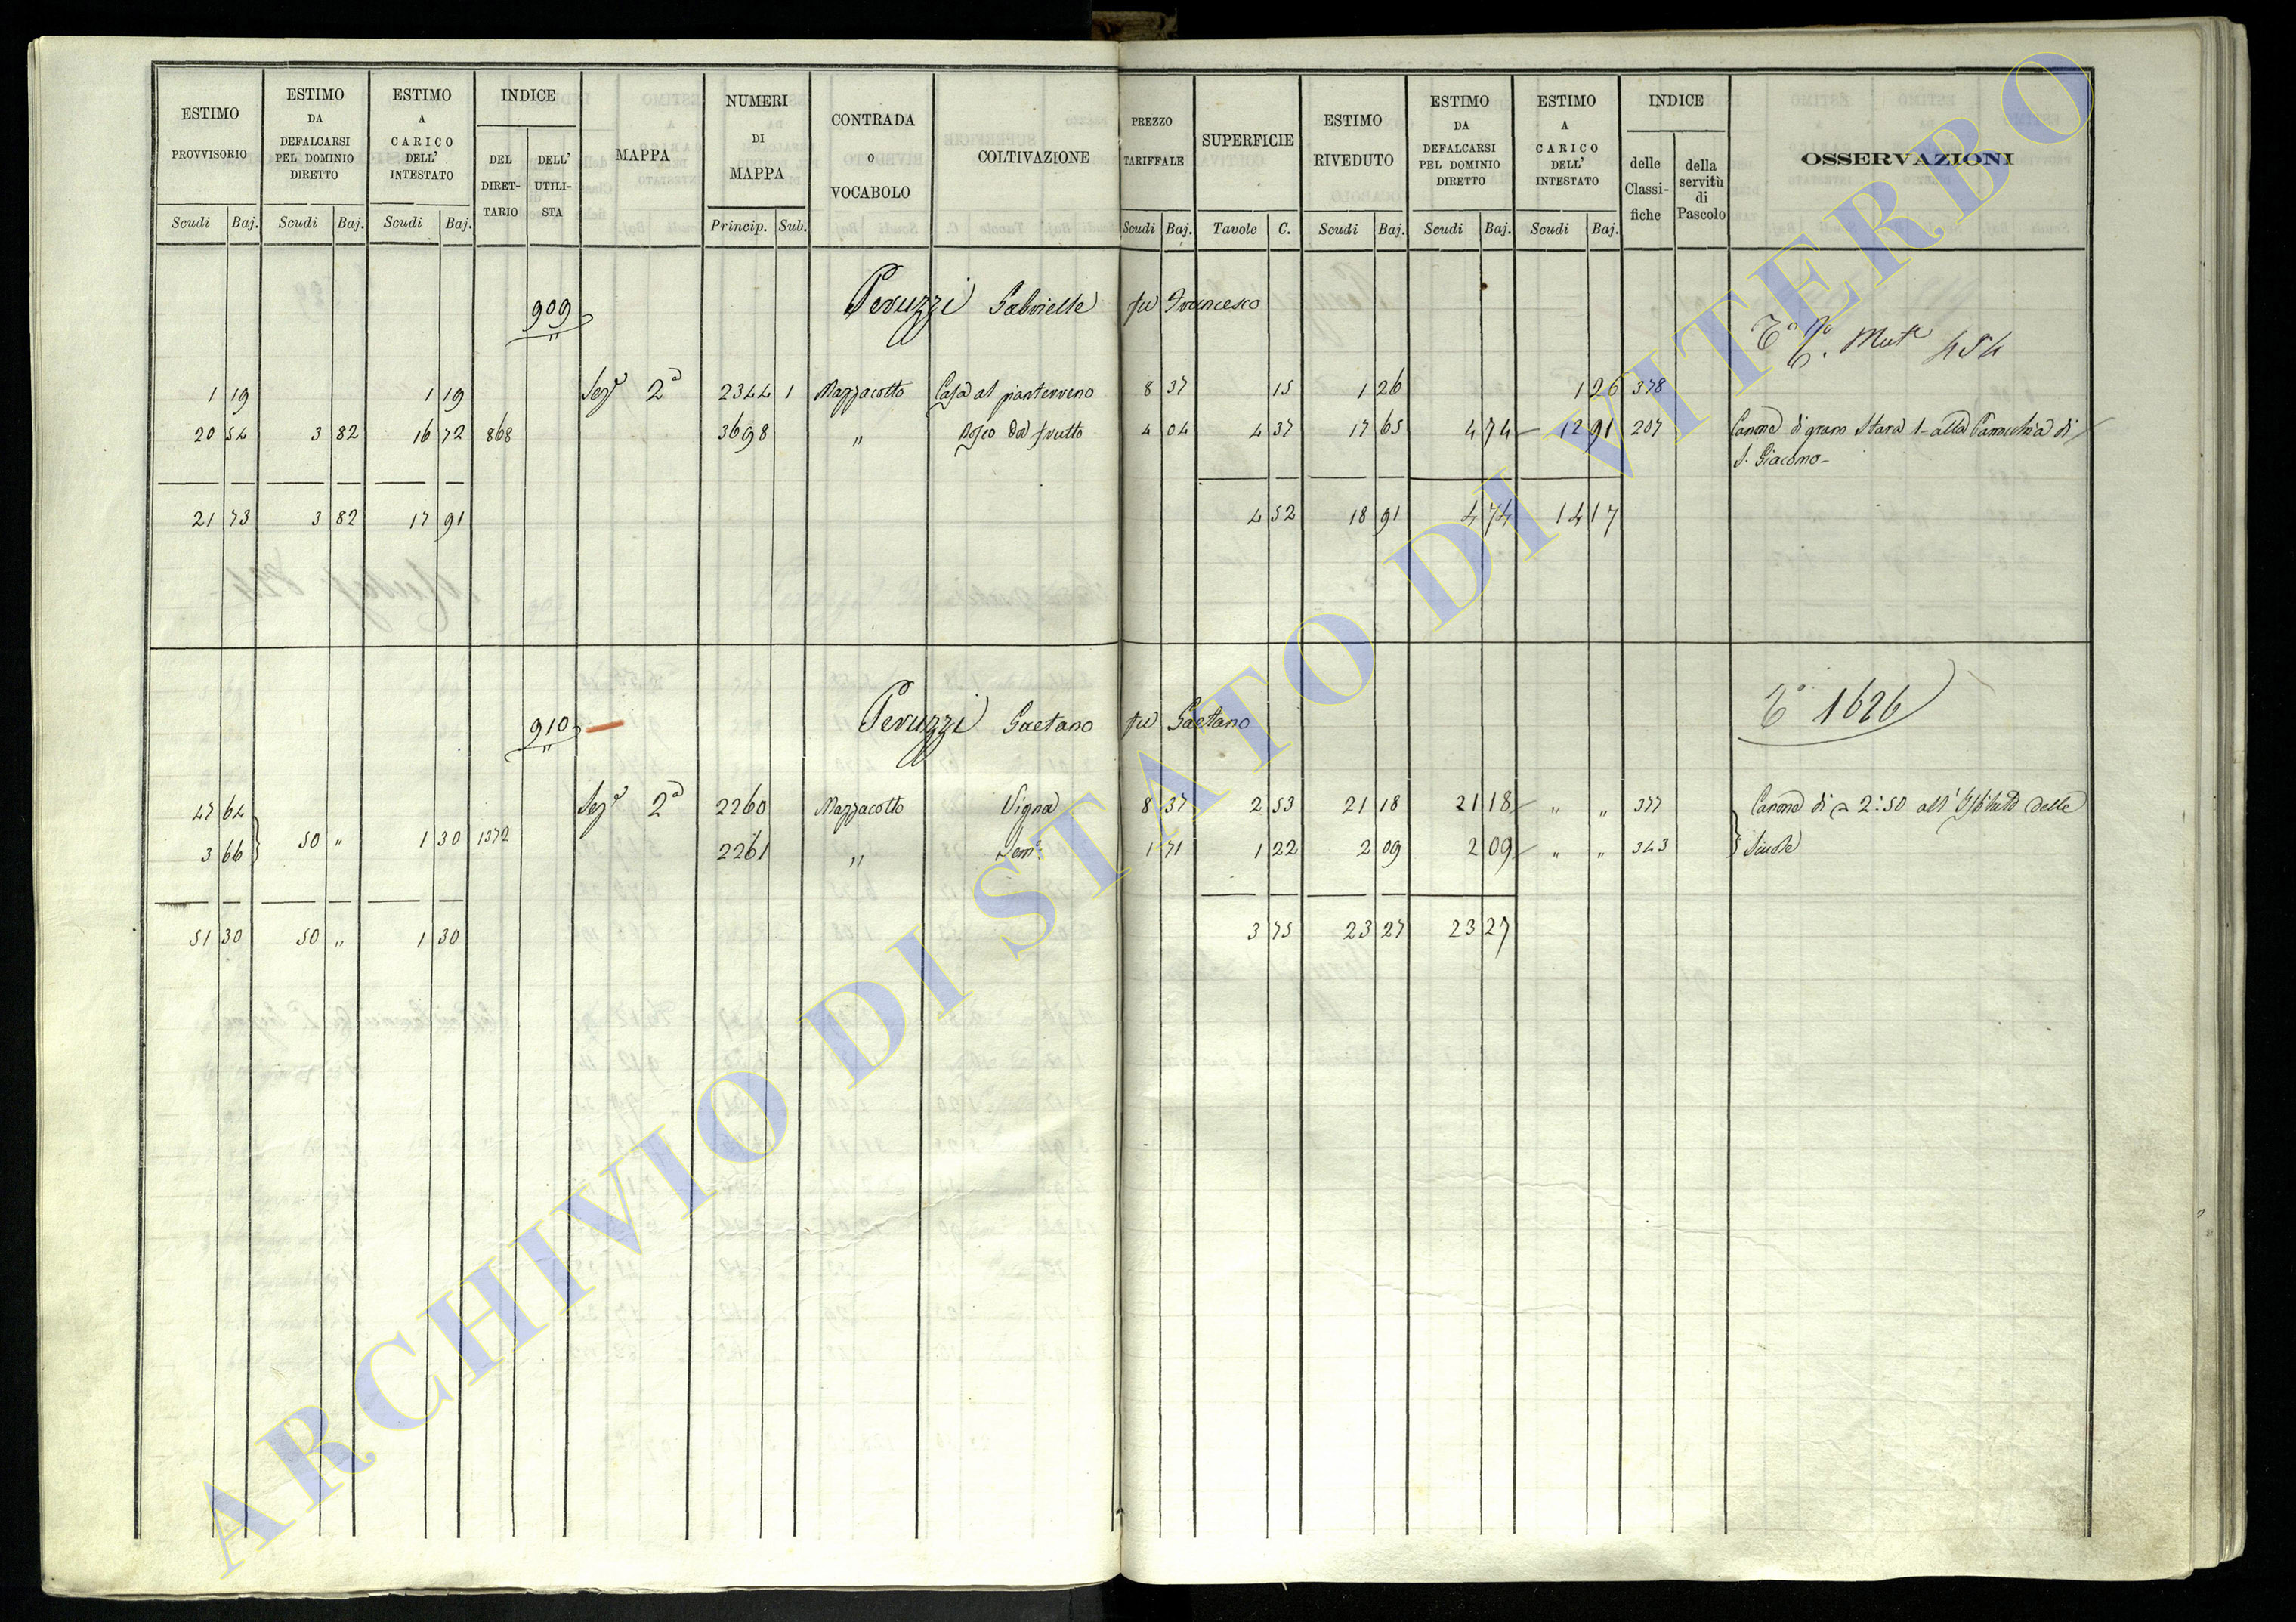 ESTIMO PROVVISORIO | ESTIMO DA DEFALCARSI PEL DOMINIO DIRETTO | ESTIMO A CARICO DELL' INTESTATO | INDICE | MAPPA | NUMERI DI MAPPA | CONTRADA O VOCABOLO | COLTIVAZIONE | PREZZO TARIFFALE | SUPERFICIE | ESTIMO RIVEDUTO | ESTIMO DA DEFALCARSI PEL DOMINIO DIRETTO | ESTIMO A CARICO DELL' INTESTATO | INDICE | OSSERVAZIONI
DEL DIRETTARIO | DELL' UTILISTA | delle Classifiche | della servitù di Pascolo
Scudi | Baj. | Scudi | Baj. | Scudi | Baj. | Princip. | Sub. | Scudi | Baj. | Tavole | C. | Scudi | Baj. | Scudi | Baj. | Scudi | Baj.
909 Peruzzi Gabrielle fu Francesco
Mut 454
1 19 | 1 19 | Sez 2a | 2344 1 | Mazzacotto | Casa al pianterreno | 8 37 | 15 | 1 26 | 1 26 | 378
20 54 | 3 82 | 16 72 | 868 | 3698 | " | Bosco da frutto | 4 04 | 4 37 | 17 65 | 4 74 | 12 91 | 207 | Canone di grano Stara 1- alla Parrocchia di
S. Giacomo-
21 73 | 3 82 | 17 91 | 4 52 | 18 91 | 4 74 | 14 17
910 Peruzzi Gaetano fu Gaetano
1626
47 64 | Sez 2a | 2260 | Mazzacotto | Vigna | 8 37 | 2 53 | 21 18 | 21 18 | " | " | 377 | Canone di 2:50 all' Istituto delle
3 66 | 50 " | 1 30 | 1372 | 2261 | " | Sem. | 1 71 | 1 22 | 2 09 | 2 09 | " | " | 343 | Scuole
51 30 | 50 " | 1 30 | 3 75 | 23 27 | 23 27
ARCHIVIO DI STATO DI VITERBO